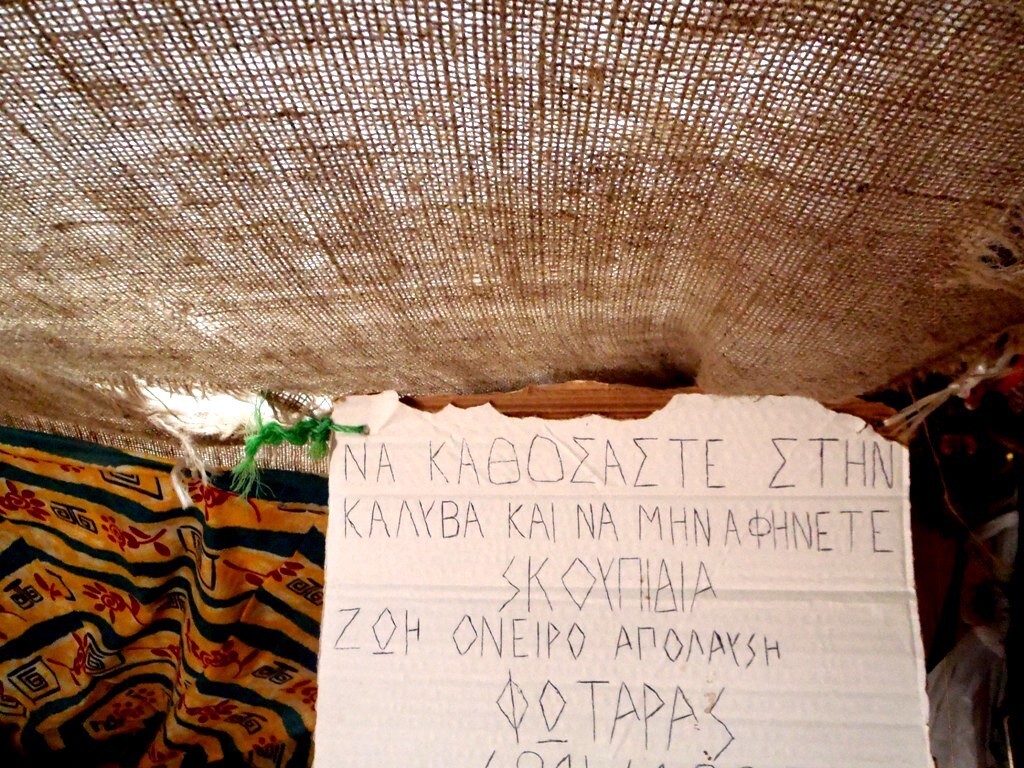 ΝΑ ΚΑΘΟΣΑΣΤΕ ΣΤΗΝ
ΚΑΛΥΒΑ ΚΑΙ ΝΑ ΜΗΝ ΑΦΗΝΕΤΕ
ΣΚΟΥΠΙΔΙΑ
ΖΩΗ ΟΝΕΙΡΟ ΑΠΟΛΑΥΣΗ
ΦΩΤΑΡΑΣ